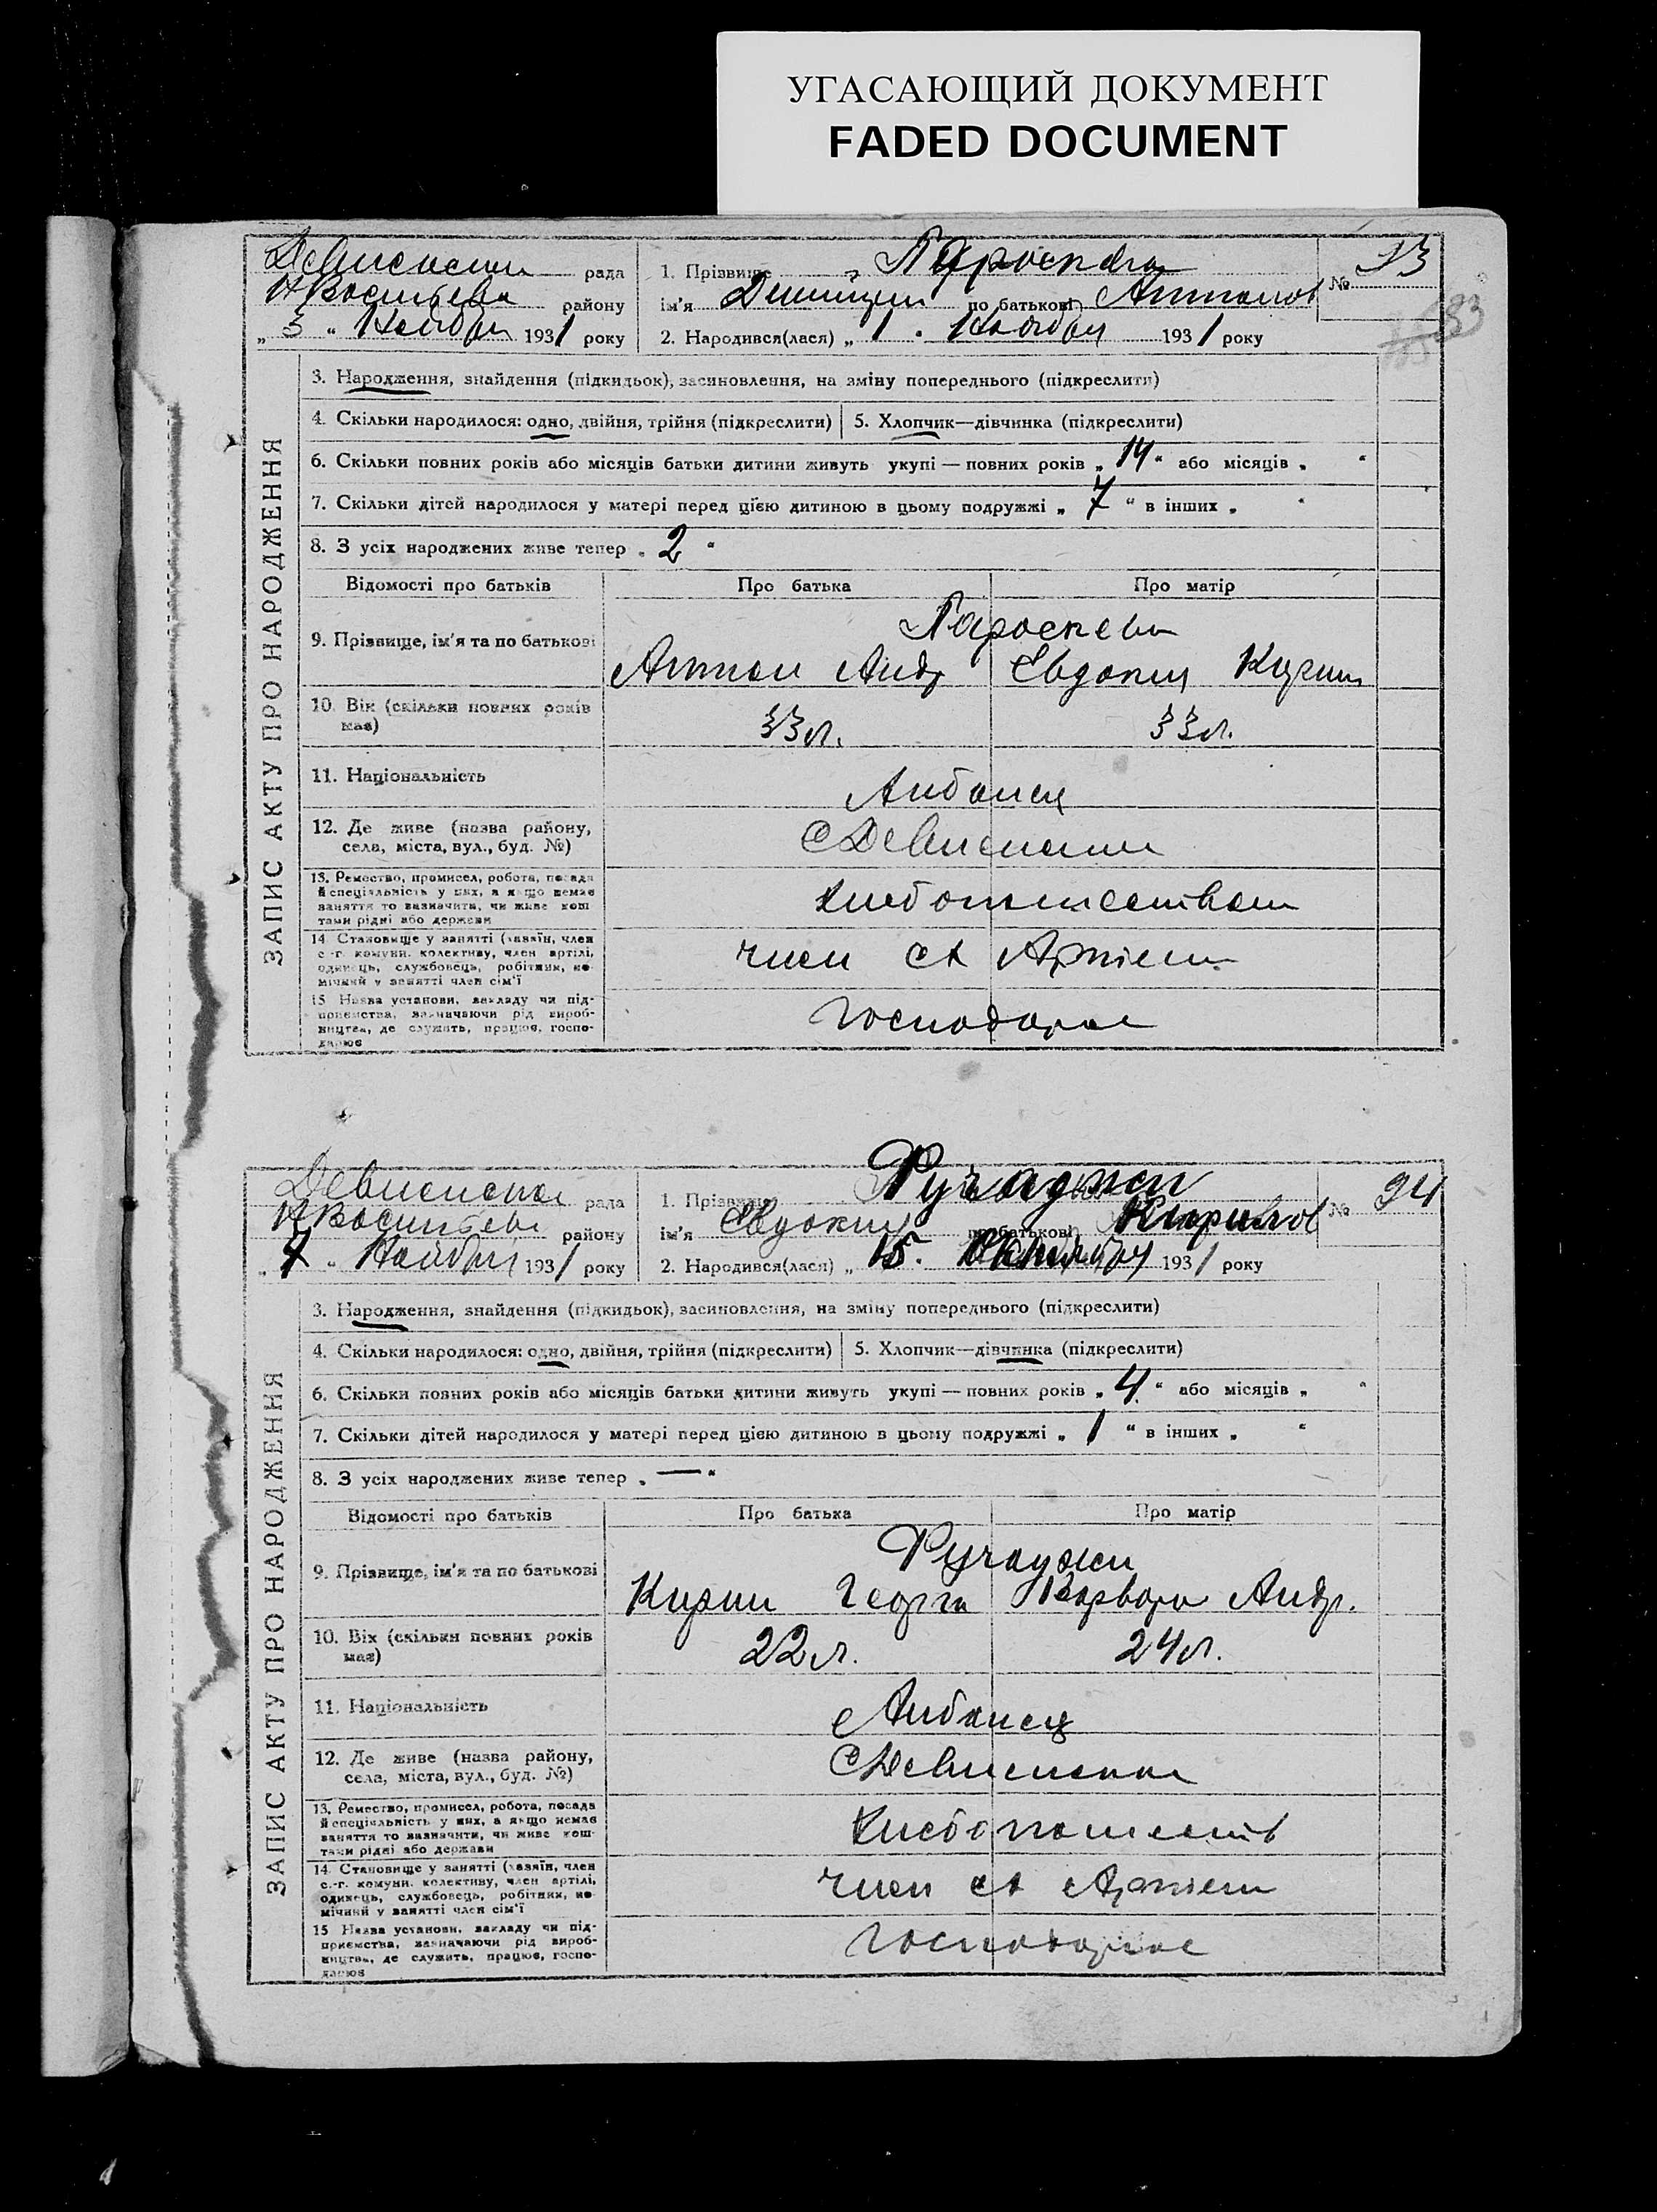 УГАСАЮЩИЙ ДОКУМЕНТ
FADED DOCUMENT
рада
району
„ 3 “ Ноября 1931 року
1. Прізвище
ім'я по батькові Антонов
2. Народився(лася) „ 1 “ Ноября 1931 року
№ 93
ЗАПИС АКТУ ПРО НАРОДЖЕННЯ
3. Народження, знайдення (підкидьок), засиновлення, на зміну попереднього (підкреслити)
4. Скільки народилося: одно, двійня, трійня (підкреслити) 5. Хлопчик—дівчинка (підкреслити)
6. Скільки повних років або місяців батьки дитини живуть укупі — повних років „ 14 “ або місяців „ “
7. Скільки дітей народилося у матері перед цією дитиною в цьому подружжі „ 7 “ в інших „ “
8. З усіх народжених живе тепер „ 2 “
Відомості про батьків Про батька Про матір
9. Прізвище, ім'я та по батькові
Антон Андр Евдокия
10. Вік (скільки повних років має) 33 л. 33 л.
11. Національність Албанец
12. Де живе (назва району, села, міста, вул., буд. №)
13. Ремество, промисел, робота, посада й спеціяльність у них, а якщо немає заняття то зазначити, чи живе коштами рідні або держави
14. Становище у занятті (хазяїн, член с.-г. комуни, колективу, член артілі, одинець, службовець, робітник, помічний у занятті член сім'ї член сх Артіли
15. Назва установи, закладу чи підприємства, зазначаючи рід виробництва, де служить, працює, господарює Господарює
рада
району
„ 7 “ Ноября 1931 року
1. Прізвище Ручаджи
ім'я Евдокия по батькові Кирилов
2. Народився(лася) „ 15 “ 1931 року
№ 94
ЗАПИС АКТУ ПРО НАРОДЖЕННЯ
3. Народження, знайдення (підкидьок), засиновлення, на зміну попереднього (підкреслити)
4. Скільки народилося: одно, двійня, трійня (підкреслити) 5. Хлопчик—дівчинка (підкреслити)
6. Скільки повних років або місяців батьки дитини живуть укупі — повних років „ 4 “ або місяців „ “
7. Скільки дітей народилося у матері перед цією дитиною в цьому подружжі „ 1 “ в інших „ “
8. З усіх народжених живе тепер „ — “
Відомості про батьків Про батька Про матір
Ручаджи
9. Прізвище, ім'я та по батькові
Кирил Георги Варвара Андр.
10. Вік (скільки повних років має) 22 л. 24 л.
11. Національність Албанец
12. Де живе (назва району, села, міста, вул., буд. №)
13. Ремество, промисел, робота, посада й спеціяльність у них, а якщо немає заняття то зазначити, чи живе коштами рідні або держави
14. Становище у занятті (хазяїн, член с.-г. комуни, колективу, член артілі, одинець, службовець, робітник, помічний у занятті член сім'ї член сх Артіли
15. Назва установи, закладу чи підприємства, зазначаючи рід виробництва, де служить, працює, господарює Господарює